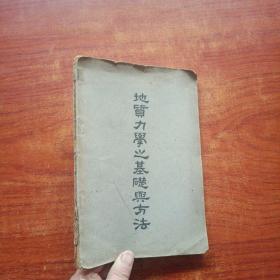 地質力學之基礎與方法